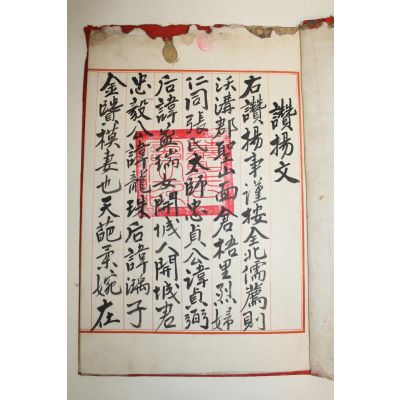 讚揚文
右讚揚事謹按全北儒薦則
沃溝郡聖山面倉梧里烈婦
仁同張氏太師忠貞公諱貞弼
后諱孟瑞女開城人開城君
忠毅公諱龍珠后諱漏子
金賢模妻也天葩柔婉在